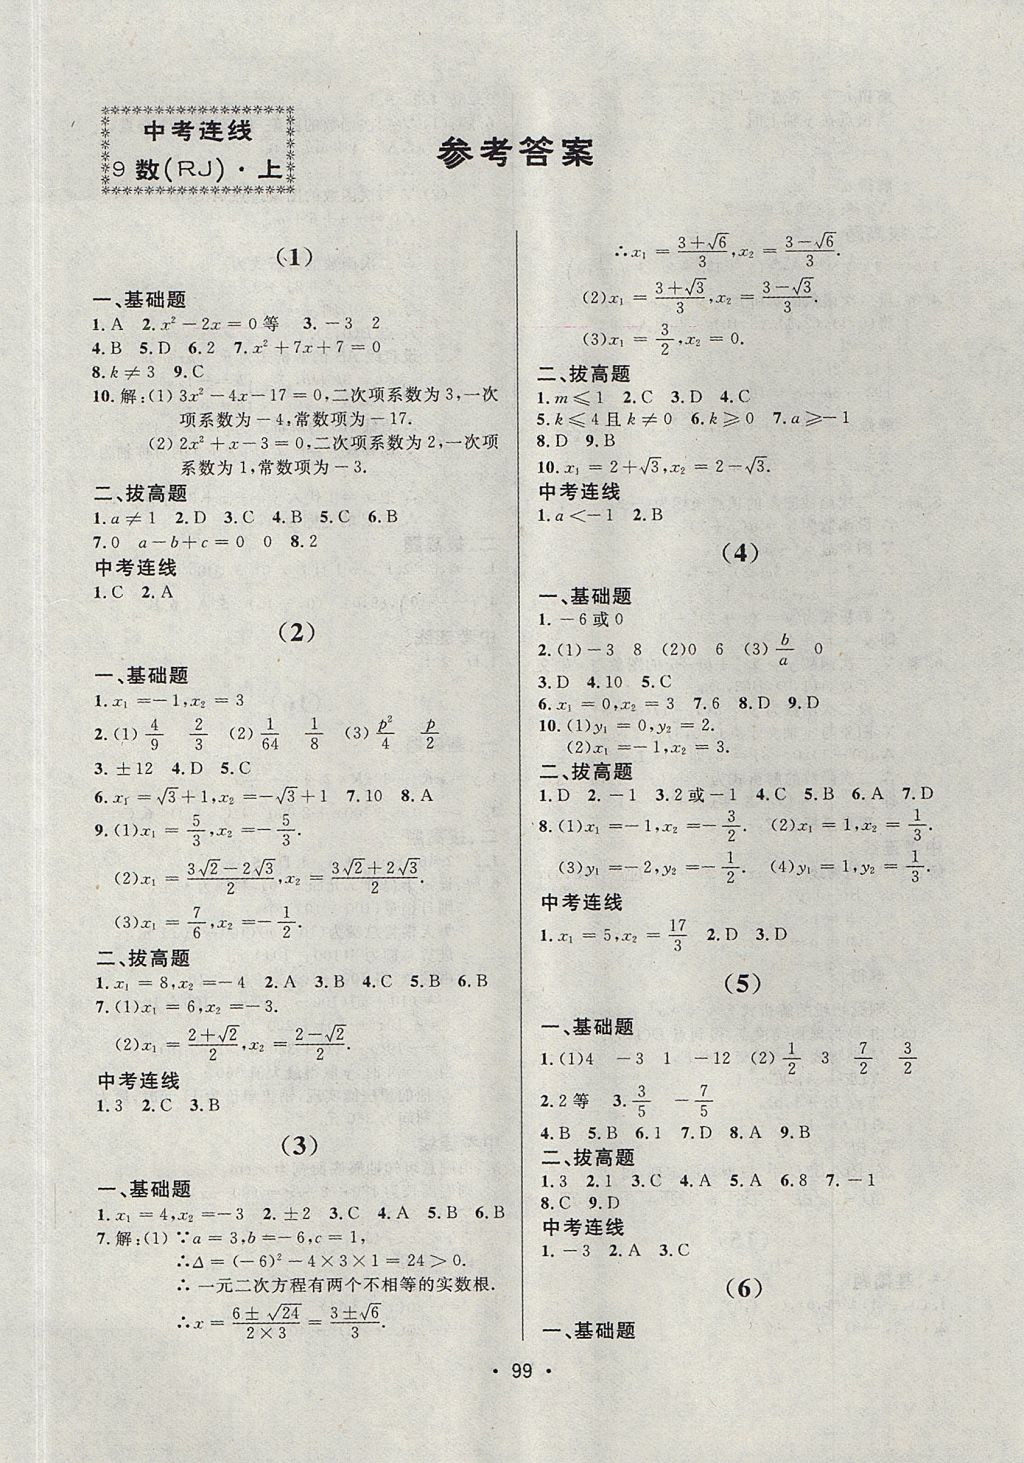 中考连线
9 数(RJ)·上
参考答案
(1)
一、基础题
1.A 2.x²-2x=0等 3.-3 2
4.B 5.D 6.2 7.x²+7x+7=0
8.k≠3 9.C
10.解:(1)3x²-4x-17=0,二次项系数为3,一次
项系数为-4,常数项为-17.
(2)2x²+x-3=0,二次项系数为2,一次项
系数为1,常数项为-3.
二、拔高题
1.a≠1 2.D 3.C 4.B 5.C 6.B
7.0 a-b+c=0 0 8.2
中考连线
1.C 2.A
(2)
一、基础题
1.x₁=-1,x₂=3
2.(1)4/9 2/3 (2)1/64 1/8 (3)p²/4 p/2
3.±12 4.D 5.C
6.x₁=√3+1,x₂=-√3+1 7.10 8.A
9.(1)x₁=5/3,x₂=-5/3.
(2)x₁=(3√2-2√3)/2,x₂=(3√2+2√3)/2.
(3)x₁=7/6,x₂=-1/2.
二、拔高题
1.x₁=8,x₂=-4 2.A 3.B 4.C 5.B 6.B
7.(1)x₁=6,x₂=-3.
(2)x₁=(2+√2)/2,x₂=(2-√2)/2.
中考连线
1.3 2.C 3.B
(3)
一、基础题
1.x₁=4,x₂=-3 2.±2 3.C 4.A 5.B 6.B
7.解:(1)∵a=3,b=-6,c=1,
∴Δ=(-6)²-4×3×1=24>0.
∴一元二次方程有两个不相等的实数根.
∴x=(6±√24)/(2×3)=(3±√6)/3.
∴x₁=(3+√6)/3,x₂=(3-√6)/3.
(2)x₁=(3+√3)/3,x₂=(3-√3)/3.
(3)x₁=3/2,x₂=0.
二、拔高题
1.m≤1 2.C 3.D 4.C
5.k≤4且k≠0 6.k≥0 7.a≥-1
8.D 9.B
10.x₁=2+√3,x₂=2-√3.
中考连线
1.a<-1 2.B
(4)
一、基础题
1.-6或0
2.(1)-3 8 (2)0 6 (3)b/a 0
3.D 4.10 5.C
6.x₁=0,x₂=3 7.6 8.D 9.D
10.(1)y₁=0,y₂=2.
(2)x₁=-1,x₂=3.
二、拔高题
1.D 2.-1 3.2或-1 4.C 5.B 6.A 7.D
8.(1)x₁=-1,x₂=-3/2. (2)x₁=1,x₂=1/3.
(3)y₁=-2,y₂=-1/2. (4)y₁=1,y₂=1/3.
中考连线
1.x₁=5,x₂=17/3 2.D 3.D
(5)
一、基础题
1.(1)4 -3 1 -12 (2)1/2 3 7/2 3/2
2.2等 3.3/5 -7/5
4.B 5.B 6.1 7.D 8.A 9.B
二、拔高题
1.3 2.1 3.C 4.A 5.A 6.8 7.-1
8.C 9.D
中考连线
1.-3 2.A 3.C
(6)
一、基础题
·99·